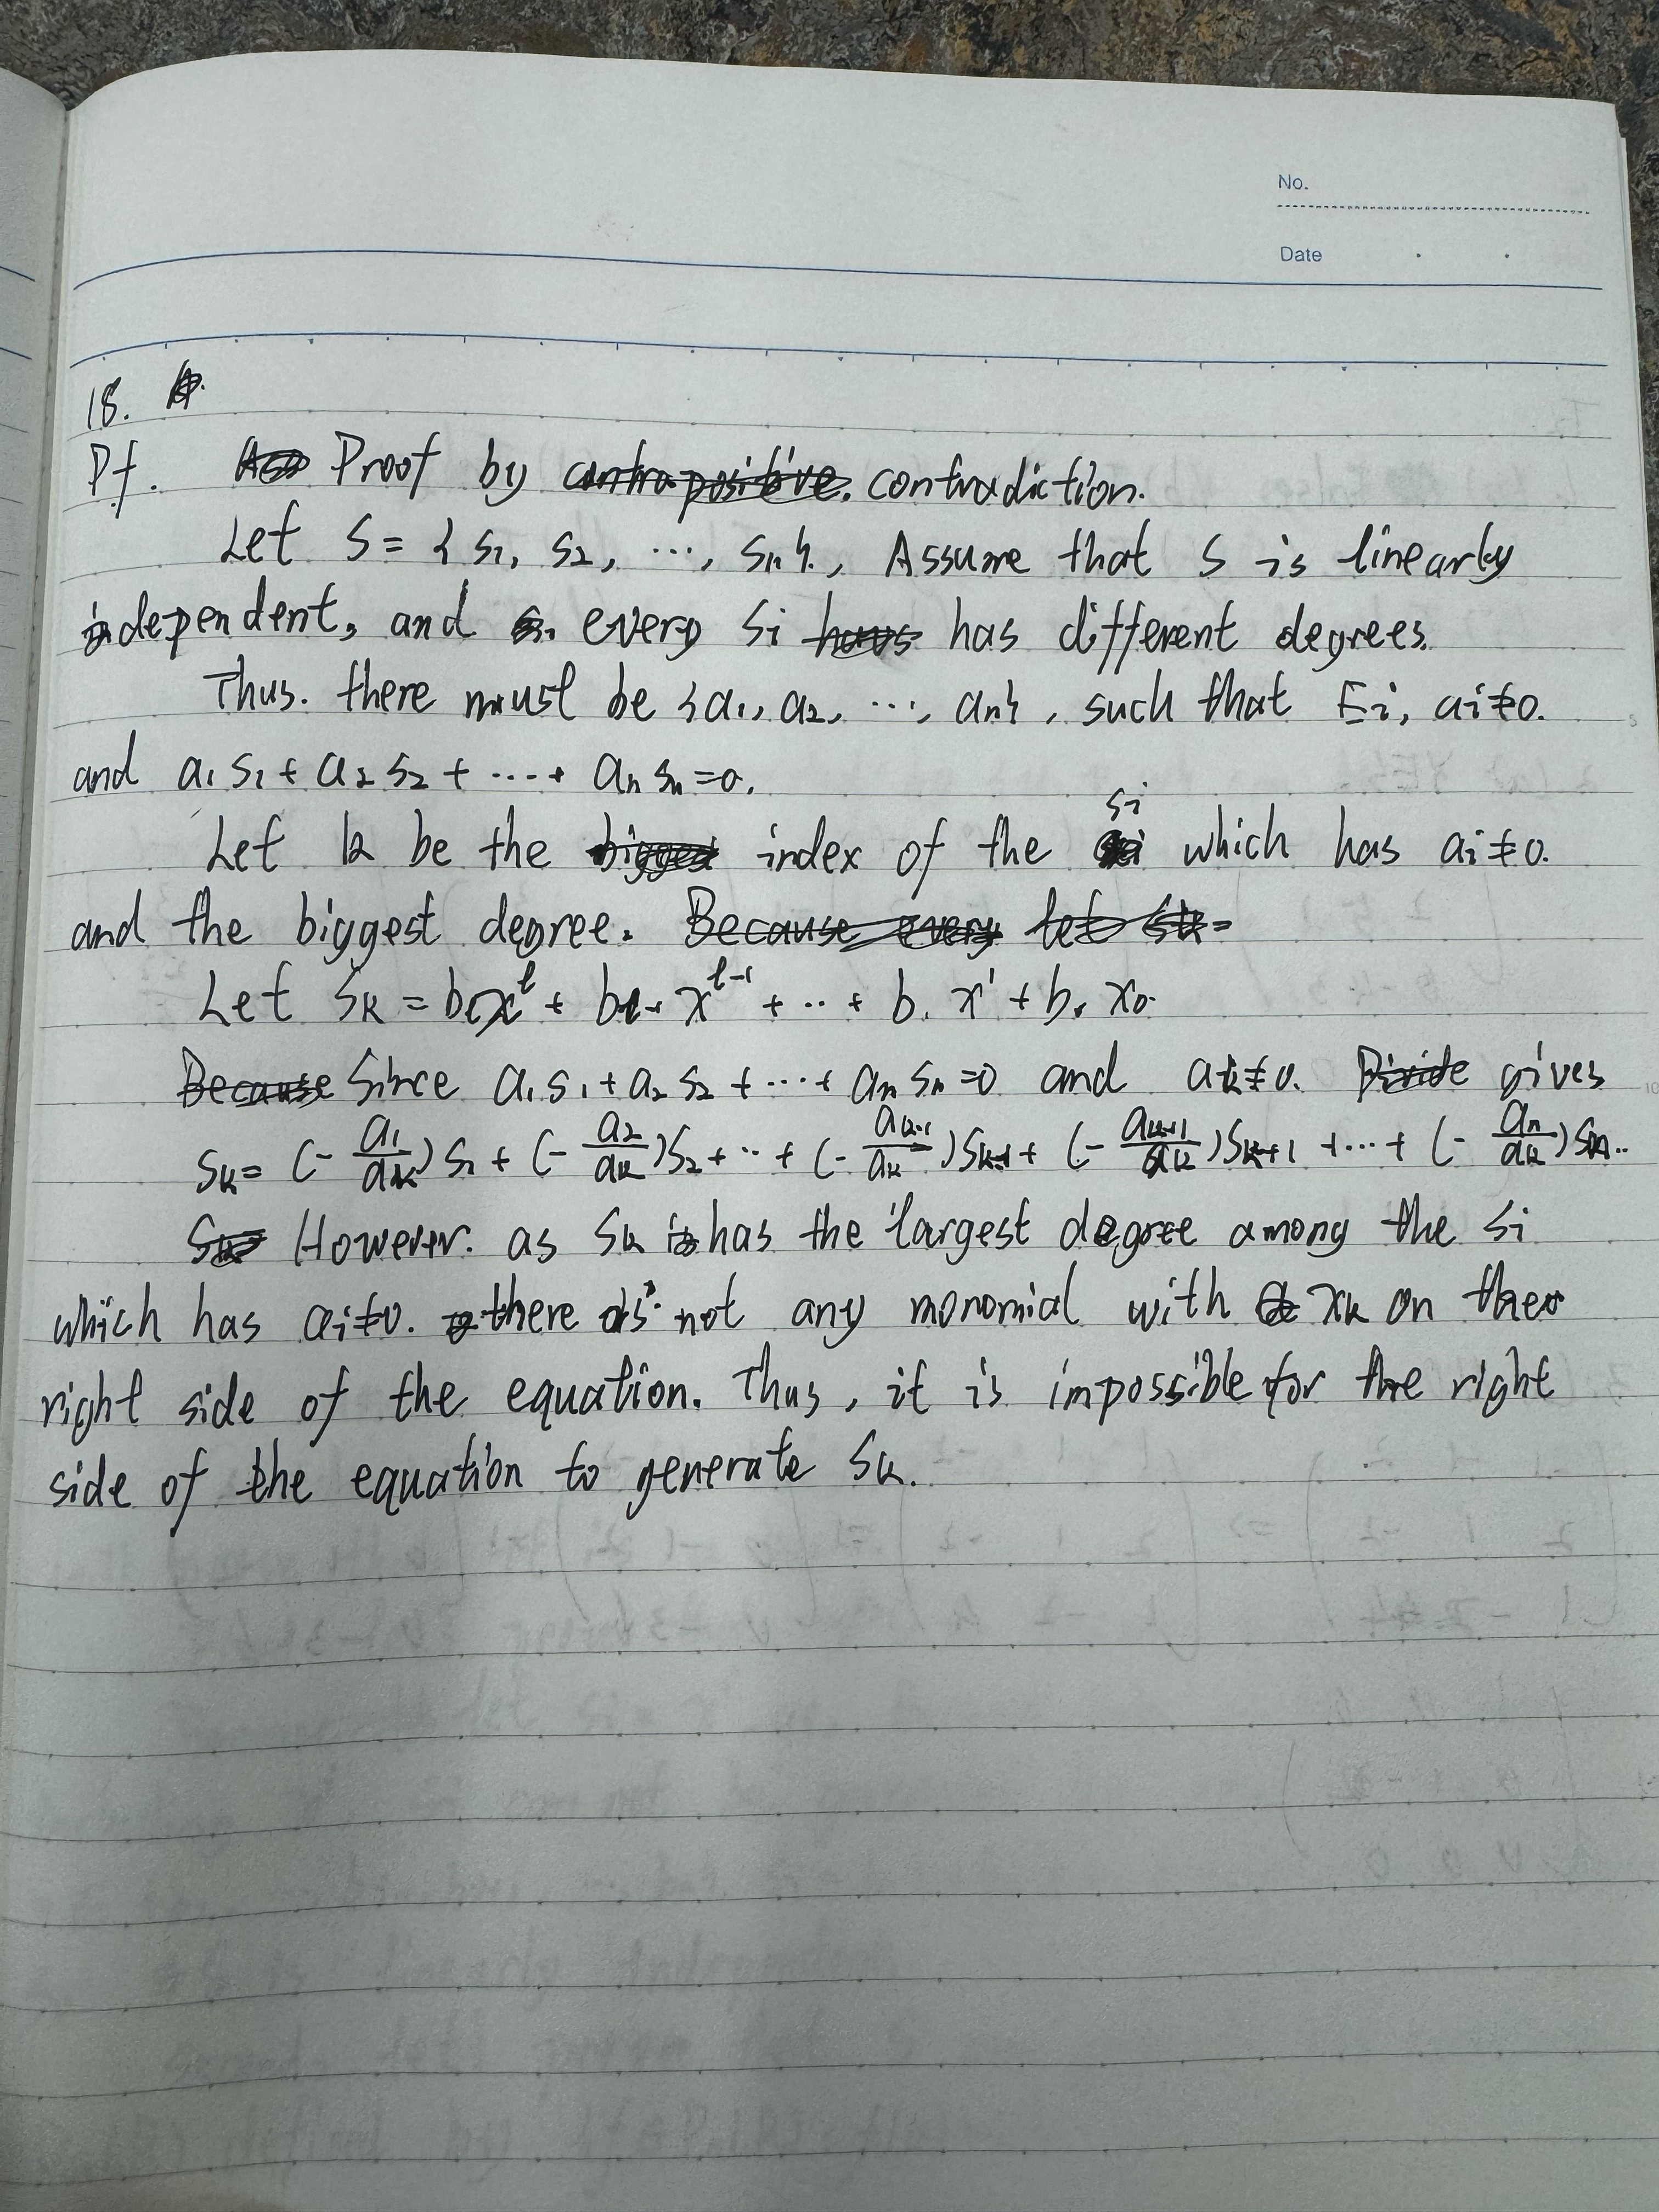 No.
Date
18.
Pf. Proof by contrapositive. contradiction.
Let S = { s₁, s₂, ..., sₙ }., Assume that S is linearly
dependent, and every si has different degrees.
Thus. there must be {a₁, a₂, ..., aₙ}, such that Ei, ai≠0.
and a₁ s₁ + a₂ s₂ + ... + aₙ sₙ = 0.
Let k be the bigges index of the si which has ai≠0.
and the biggest degree. Because every let sk =
Let Sk = bₗxˡ + bₗ₋₁ xˡ⁻¹ + .. + b₁ x¹ + b₀ x₀.
Because Since a₁s₁ + a₂ s₂ + ... + aₙ sₙ = 0 and ak≠0. Divide gives
sk = (- a₁/ak) s₁ + (- a₂/ak) s₂ + .. + (- ak-1/ak) sk-1 + (- ak+1/ak) sk+1 + ... + (- aₙ/ak) sₙ..
However. as sk has the largest degree among the si
which has ai≠0. there is not any monomial with xk on the
right side of the equation. Thus, it is impossible for the right
side of the equation to generate sk.